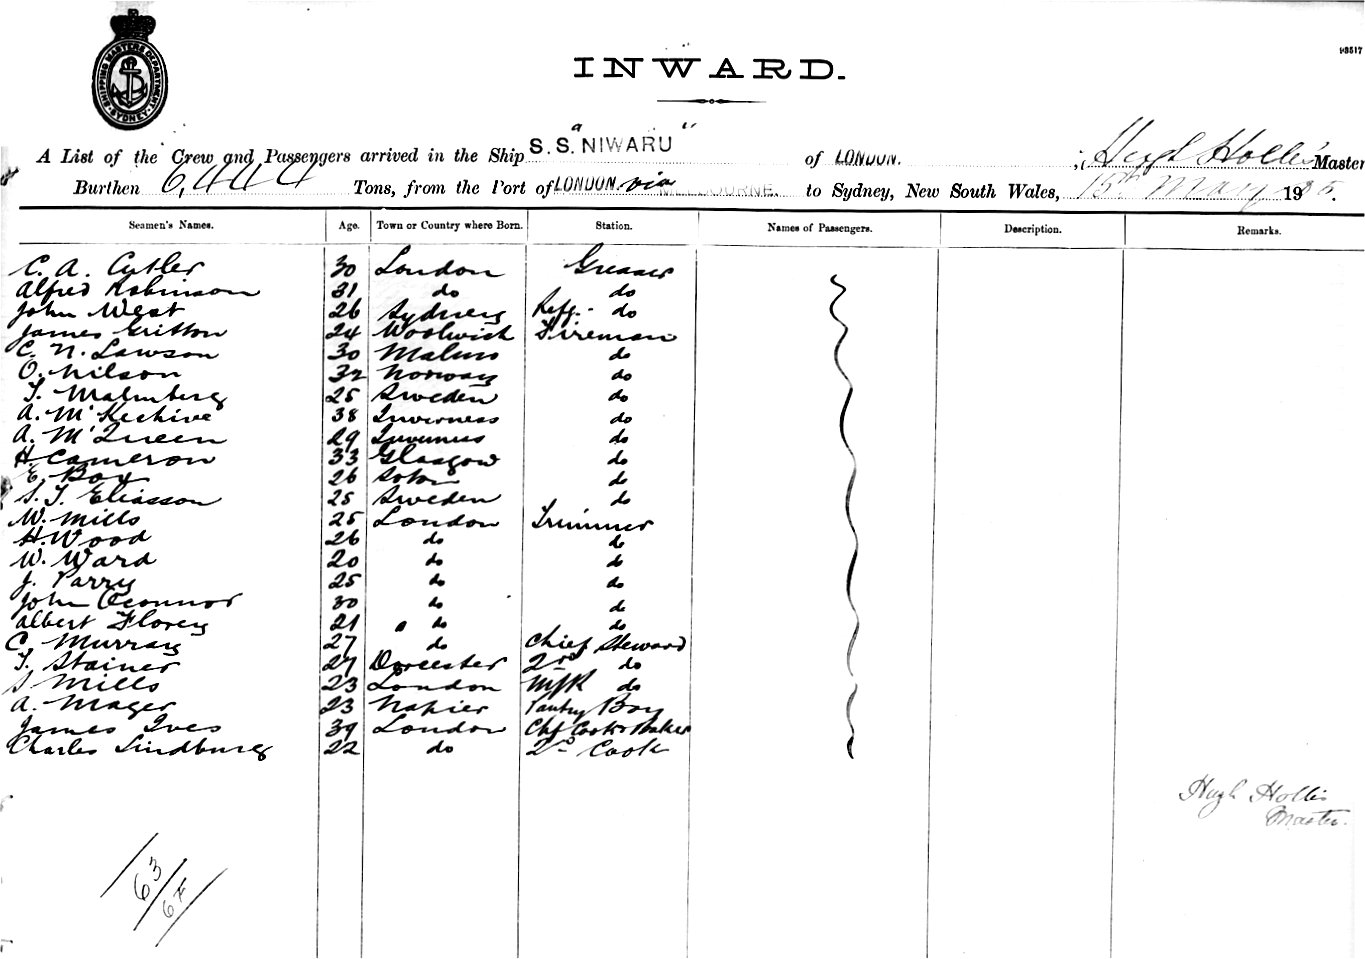 SHIPPING MASTERS DEPARTMENT SYDNEY
INWARD.
A List of the Crew and Passengers arrived in the Ship S.S. "NIWARU" of LONDON. , Hugh Hollis Master
Burthen 6,444 Tons, from the Port of LONDON via MELBOURNE. to Sydney, New South Wales, 15th May 19
Seamen's Names. Age. Town or Country where Born. Station. Names of Passengers. Description. Remarks.
C. A. Cutler 30 London Greaser
Alfred Robinson 31 do do
John West 26 Sydney Refg. do
James Gritton 24 Woolwich Fireman
C. N. Lawson 30 Malmo do
O. Nilson 32 Norway do
T. Malmberg 25 Sweden do
A. McKechive 38 Inverness do
A. McQueen 29 Inverness do
H. Cameron 33 Glasgow do
E. Box 26 Soton do
S. T. Eliasson 25 Sweden do
W. Mills 25 London Trimmer
H. Wood 26 do do
W. Ward 20 do do
J. Parry 25 do do
John OConnor 30 do do
Albert Florey 21 do do
C. Murray 27 do Chief Steward
T. Stainer 27 Dorcester 2nd do
S Mills 23 London M/R do
A. Mager 23 Napier Pantry Boy
James Ives 39 London Chf Cook & Baker
Charles Lindburg 22 do 2nd Cook
Hugh Hollis
Master.
63